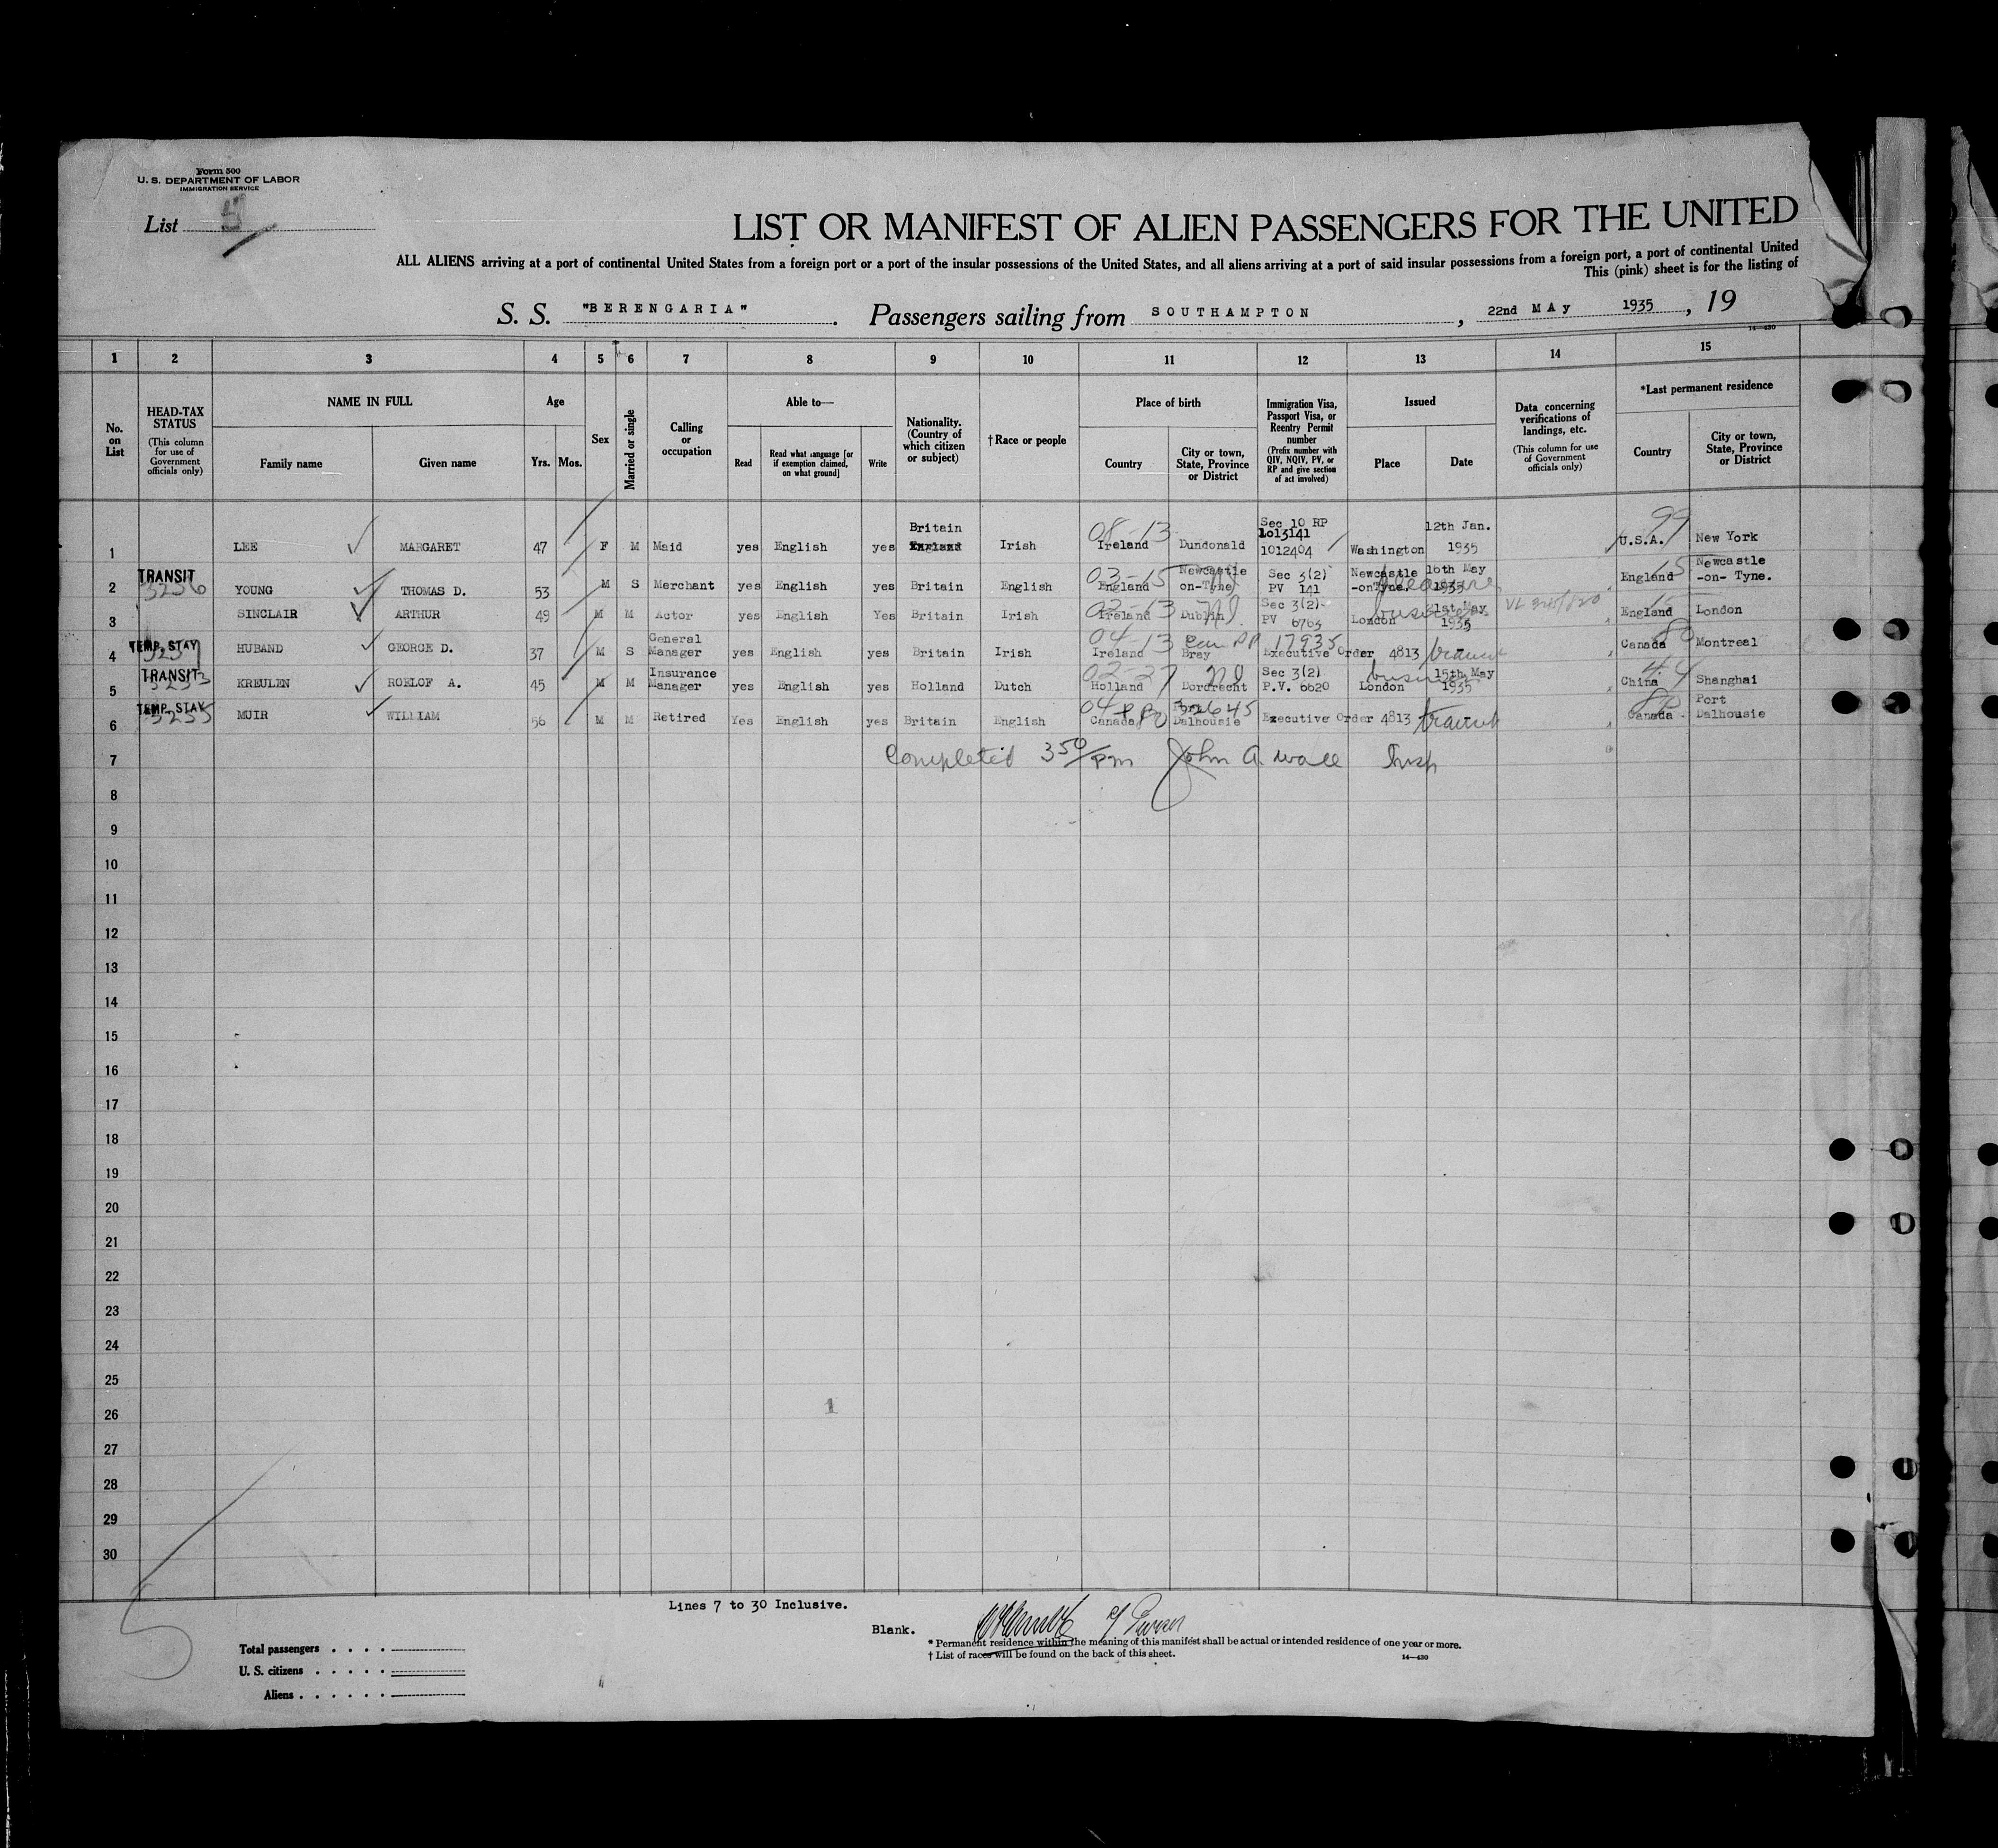 Form 500
U. S. DEPARTMENT OF LABOR
IMMIGRATION SERVICE
List 5
LIST OR MANIFEST OF ALIEN PASSENGERS FOR THE UNITED
ALL ALIENS arriving at a port of continental United States from a foreign port or a port of the insular possessions of the United States, and all aliens arriving at a port of said insular possessions from a foreign port, a port of continental United
This (pink) sheet is for the listing of
S. S. "BERENGARIA". Passengers sailing from SOUTHAMPTON, 22nd MAy 1935, 19
14—430
1 2 3 4 5 6 7 8 9 10 11 12 13 14 15
No. on List
HEAD-TAX STATUS
(This column for use of Government officials only)
NAME IN FULL
Family name
Given name
Age
Yrs. Mos.
Sex
Married or single
Calling or occupation
Able to—
Read
Read what language [or if exemption claimed, on what ground]
Write
Nationality. (Country of which citizen or subject)
†Race or people
Place of birth
Country
City or town, State, Province or District
Immigration Visa, Passport Visa, or Reentry Permit number
(Prefix number with QIV, NQIV, PV, or RP and give section of act involved)
Issued
Place
Date
Data concerning verifications of landings, etc.
(This column for use of Government officials only)
*Last permanent residence
Country
City or town, State, Province or District
1 LEE MARGARET 47 F M Maid yes English yes Britain Irish 08-13 Ireland Dundonald Sec 10 RP 1013141 1012404 Washington 12th Jan. 1935 99 U.S.A. New York
2 TRANSIT 3256 YOUNG THOMAS D. 53 M S Merchant yes English yes Britain English 03-15 England Newcastle on-Tyne Sec 3(2) PV 141 Newcastle -onTyne. 16th May 1935 pleasure 15 England Newcastle -on- Tyne.
3 SINCLAIR ARTHUR 49 M M Actor yes English Yes Britain Irish 02-13 Ireland Dublin Sec 3(2) PV 6763 London business 21st May 1935 England London
4 TEMP. STAY HUBAND GEORGE D. 37 M S General Manager yes English yes Britain Irish 04-13 Ireland Bray Can PP 17935 Executive Order 4813 transit 80 Canada Montreal
5 TRANSIT 3253 KREULEN ROELOF A. 45 M M Insurance Manager yes English yes Holland Dutch 02-27 Holland Dordrecht Sec 3(2) P.V. 6620 London business 15th May 1935 44 China Shanghai
6 TEMP. STAY 3255 MUIR WILLIAM 56 M M Retired Yes English yes Britain English 04 80 Canada Dalhousie Executive Order 4813 transit 80 Canada Port Dalhousie
7 Completed 3 50/pm John A Wall Insp
8
9
10
11
12
13
14
15
16
17
18
19
20
21
22
23
24
25
26
27
28
29
30
5
Lines 7 to 30 Inclusive.
Blank.
Total passengers . . . .
U. S. citizens . . . . .
Aliens . . . . . .
* Permanent residence within the meaning of this manifest shall be actual or intended residence of one year or more.
† List of races will be found on the back of this sheet.
14—430